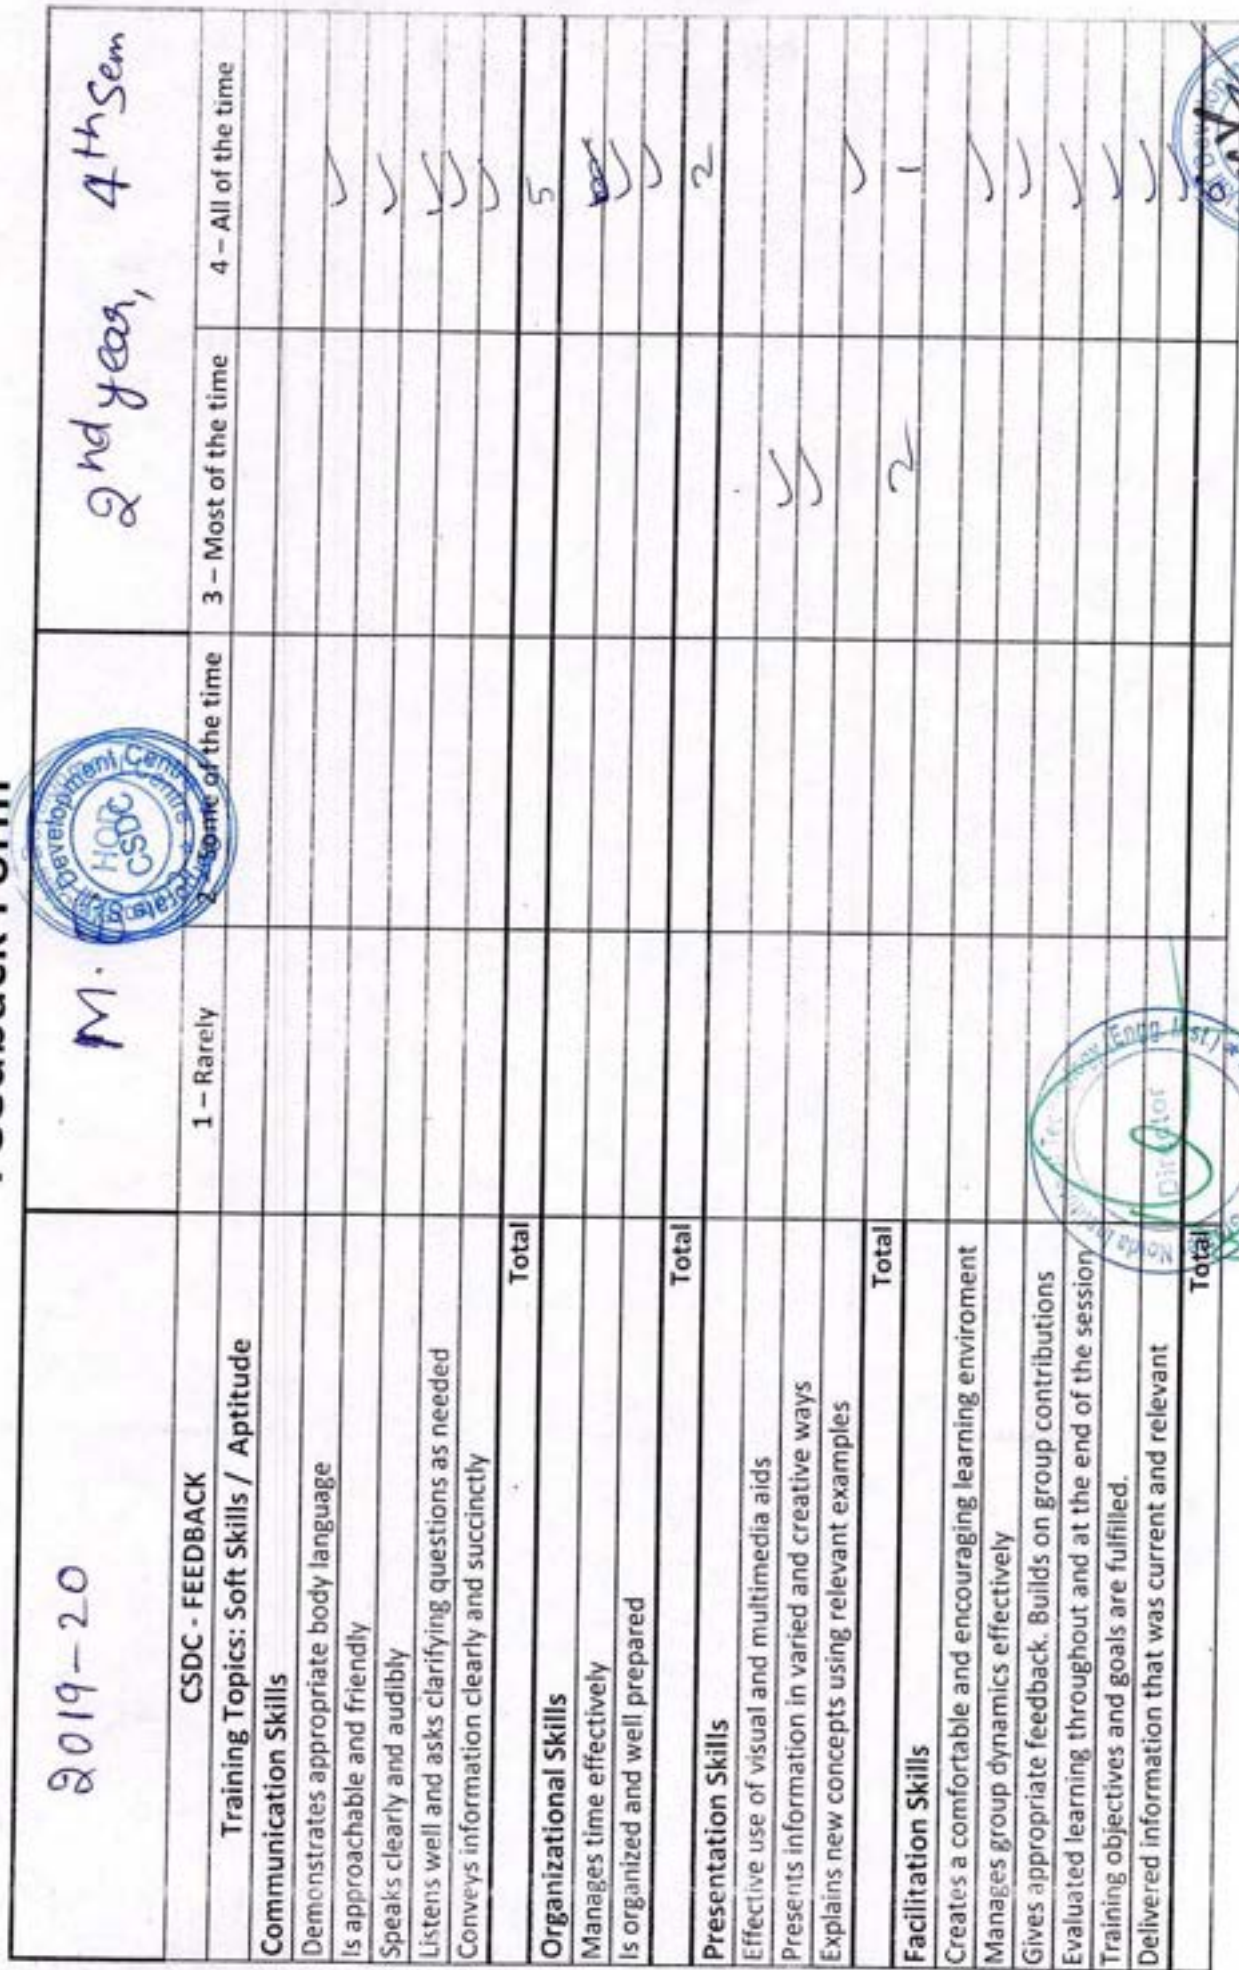 2019-20 M. 2nd year, 4th Sem
CSDC - FEEDBACK 1 – Rarely 2 – Some of the time 3 – Most of the time 4 – All of the time
Training Topics: Soft Skills / Aptitude
Communication Skills
Demonstrates appropriate body language ✓
Is approachable and friendly ✓
Speaks clearly and audibly ✓
Listens well and asks clarifying questions as needed ✓
Conveys information clearly and succinctly ✓
Total 5
Organizational Skills
Manages time effectively ✓
Is organized and well prepared ✓
Total 2
Presentation Skills
Effective use of visual and multimedia aids ✓
Presents information in varied and creative ways ✓
Explains new concepts using relevant examples ✓
Total 2 1
Facilitation Skills
Creates a comfortable and encouraging learning enviroment ✓
Manages group dynamics effectively ✓
Gives appropriate feedback. Builds on group contributions ✓
Evaluated learning throughout and at the end of the session ✓
Training objectives and goals are fulfilled. ✓
Delivered information that was current and relevant ✓
Total 6
Development Centre
HOD
CSDC
Noida
(Engg. Inst.)
Director